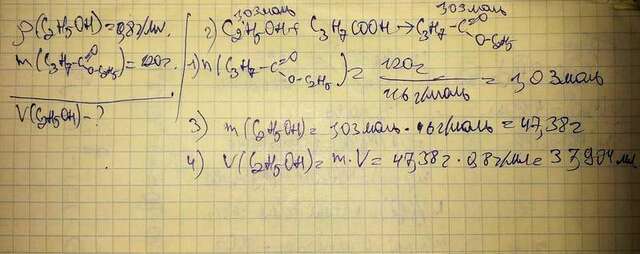 ρ(C₂H₅OH)=0,8г/мл.
m(C₃H₇-C=O O-C₂H₅)=120г.
V(C₂H₅OH)-?
1,03моль 1,03моль
2) C₂H₅OH + C₃H₇COOH → C₃H₇-C=O O-C₂H₅
1) n(C₃H₇-C=O O-C₂H₅) = 120г / 116г/моль = 1,03моль
3) m(C₂H₅OH) = 1,03моль · 46г/моль = 47,38г
4) V(C₂H₅OH) = m·V = 47,38г · 0,8г/мл = 37,904 мл